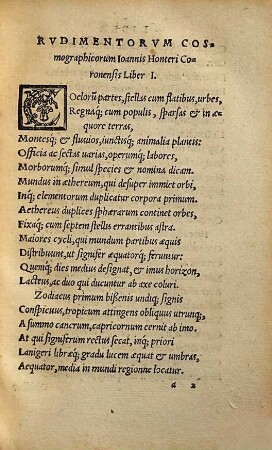 RVDIMENTORVM COS-
mographicorum Ioannis Honteri Co-
ronensis Liber I.
COelorũ partes, stellas cum flatibus, urbes,
Regnaq; cum populis, sparsas & in æ-
quore terras,
Montesq; & fluuios, iunctisq; animalia plantis:
Officia ac sectas uarias, operumq; labores,
Morborumq; simul species & nomina dicam.
Mundus in æthereum, qui desuper imminet orbi,
Inq; elementorum duplicatur corpora primum.
Aethereus duplices sphærarum continet orbes,
Fixaq; cum septem stellis errantibus astra.
Maiores cycli, qui mundum partibus æquis
Distribuunt, ut signifer æquatorq; feruntur:
Quemiq; dies medius designat, & imus horizon,
Lacteus, ac duo qui ducuntur ab axe coluri.
Zodiacus primum bissenis undiq; signis
Conspicuus, tropicum attingens obliquus utrunq;,
A summo cancrum, capricornum cernit ab imo.
At qui signiferum rectus secat, inq; priori
Lanigeri libræq; gradu lucem æquat & umbras,
Aequator, media in mundi regione locatur.
a 2